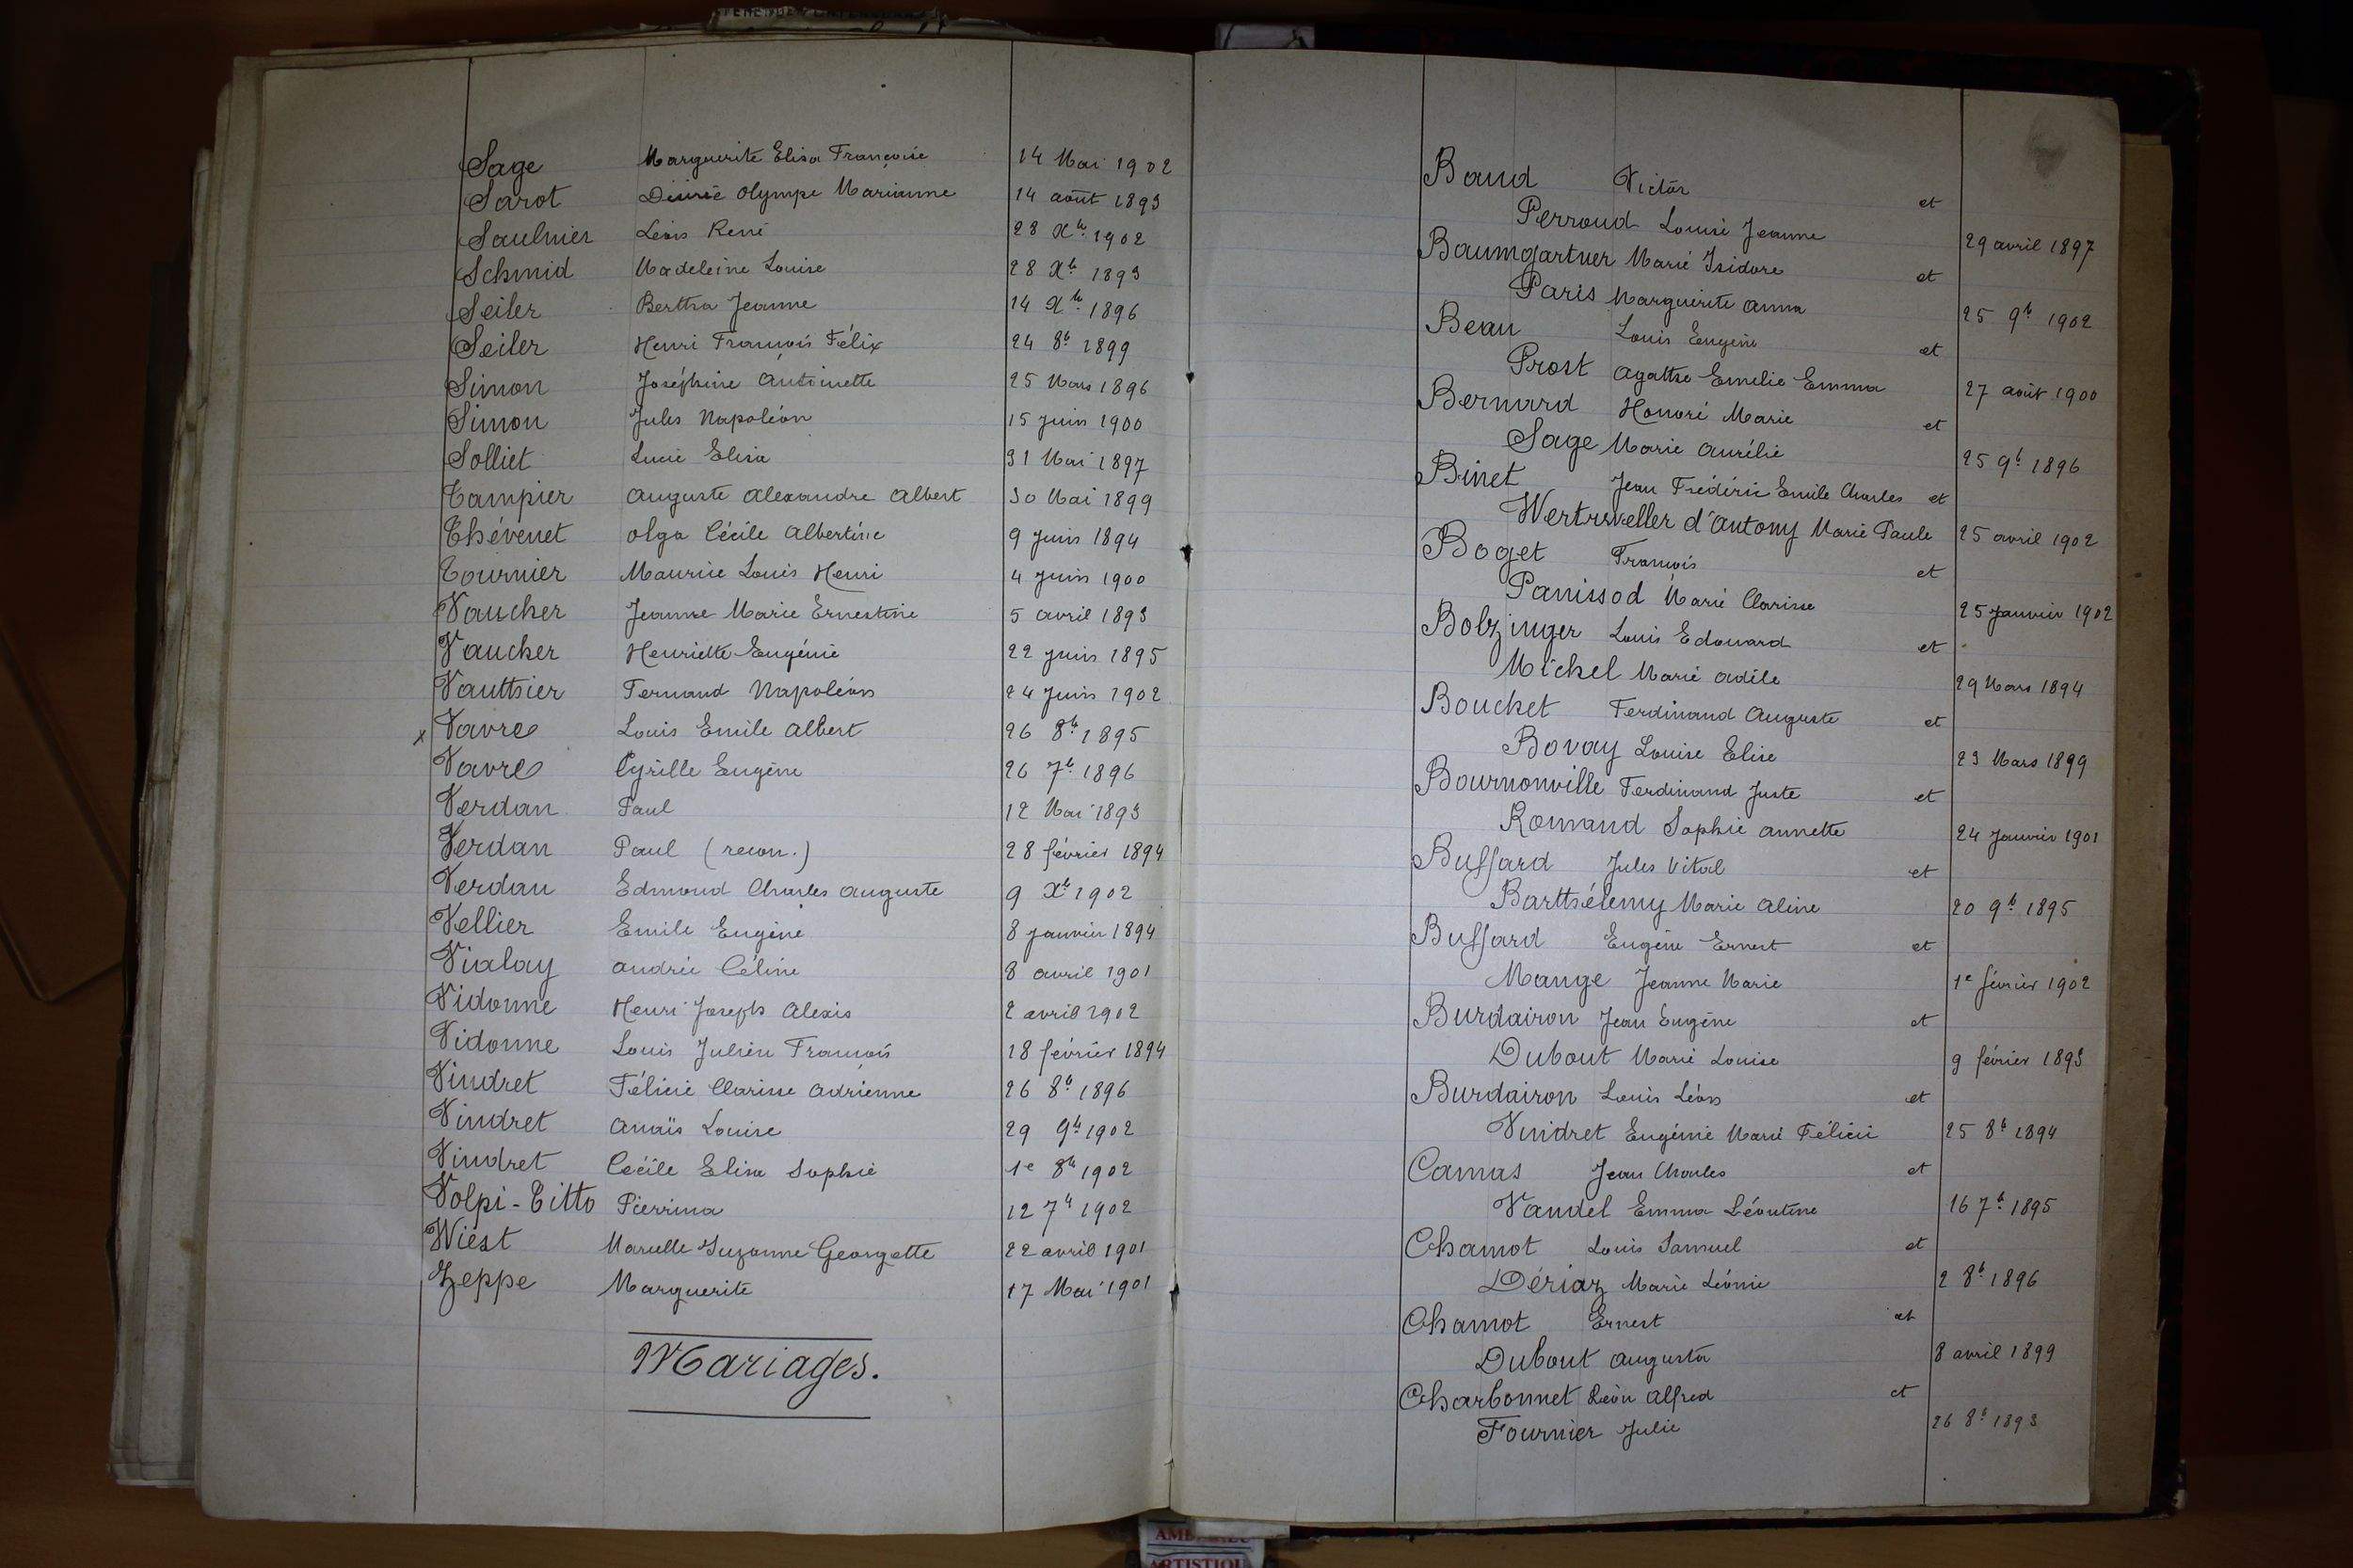 Sage Marguerite Elisa Françoise 14 Mai 1902
Sarot Désirée Olympe Marianne 14 août 1893
Saulnier Léon René 28 Xbre 1902
Schmid Madeleine Louise 28 Xb 1893
Seiler Bertha Jeanne 14 Xbre 1896
Seiler Henri François Félix 24 8b 1899
Simon Joséphine Antoinette 25 Mars 1896
Simon Jules Napoléon 15 juin 1900
Solliet Lucie Elisa 31 Mai 1897
Tampier Auguste Alexandre Albert 30 Mai 1899
Thévenet Olga Cécile Albertine 9 juin 1894
Tournier Maurice Louis Henri 4 juin 1900
Vaucher Jeanne Marie Ernestine 5 avril 1893
Vaucher Henriette Eugénie 22 juin 1895
Vauthier Fernand Napoléon 24 juin 1902
x Vavre Louis Emile Albert 26 8b 1895
Vavre Cyrille Eugène 26 7b 1896
Verdan Paul 12 Mai 1893
Verdan Paul (recon.) 28 février 1894
Verdan Edmond Charles Auguste 9 Xb 1902
Vellier Emile Eugène 8 janvier 1894
Vialay Andrée Céline 8 avril 1901
Vidonne Henri Joseph Alexis 2 avril 1902
Vidonne Louis Julien François 18 février 1894
Vindret Félicie Clarisse Adrienne 26 8b 1896
Vindret Anaïs Louise 29 9b 1902
Vindret Cécile Elisa Sophie 1e 8b 1902
Volpi-Titto Pierrina 12 7b 1902
Wiest Marcelle Suzanne Georgette 22 avril 1901
Zeppe Marguerite 17 Mai 1901
Mariages.
Baud Victor et
Perroud Louise Jeanne 29 avril 1897
Baumgartner Marie Isidore et
Paris Marguerite Anna 25 9b 1902
Beau Louis Eugène et
Prost Agathe Emelie Emma 27 août 1900
Bernard Honoré Marie et
Sage Marie Aurélie 25 9b 1896
Binet Jean Frédéric Emile Charles et
d'Antony Marie Paule 25 avril 1902
Boget François et
Panissod Marie Clarisse 25 janvier 1902
Bolzinger Louis Edouard et
Michel Marie Adèle 29 Mars 1894
Bouchet Ferdinand Auguste et
Bovay Louise Elise 23 Mars 1899
Bournonville Ferdinand Juste et
Romand Sophie Annette 24 janvier 1901
Buffard Jules Vital et
Barthélemy Marie Aline 20 9b 1895
Buffard Eugène Ernest et
Mange Jeanne Marie 1e février 1902
Burdairon Jean Eugène et
Dubout Marie Louise 9 février 1893
Burdairon Louis Léon et
Vindret Eugénie Marie Félicie 25 8b 1894
Camas Jean Charles et
Vandel Emma Léontine 16 7b 1895
Chamot Louis Samuel et
Dériaz Marie Léonie 2 8b 1896
Chamot Ernest et
Dubout Augusta 8 avril 1899
Charbonnet Léon Alfred et
Fournier Julie 26 8b 1893